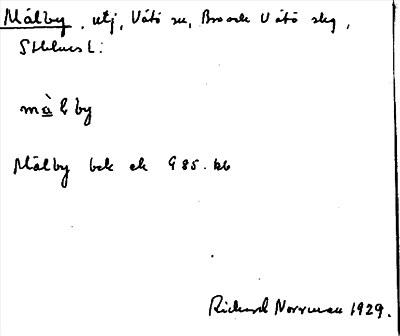 Målby, utj, Vätö sn, Broock Vätö skg,
Sthlms L:
målby
Målby bek ek 985. kb
Richard Norrman 1929.